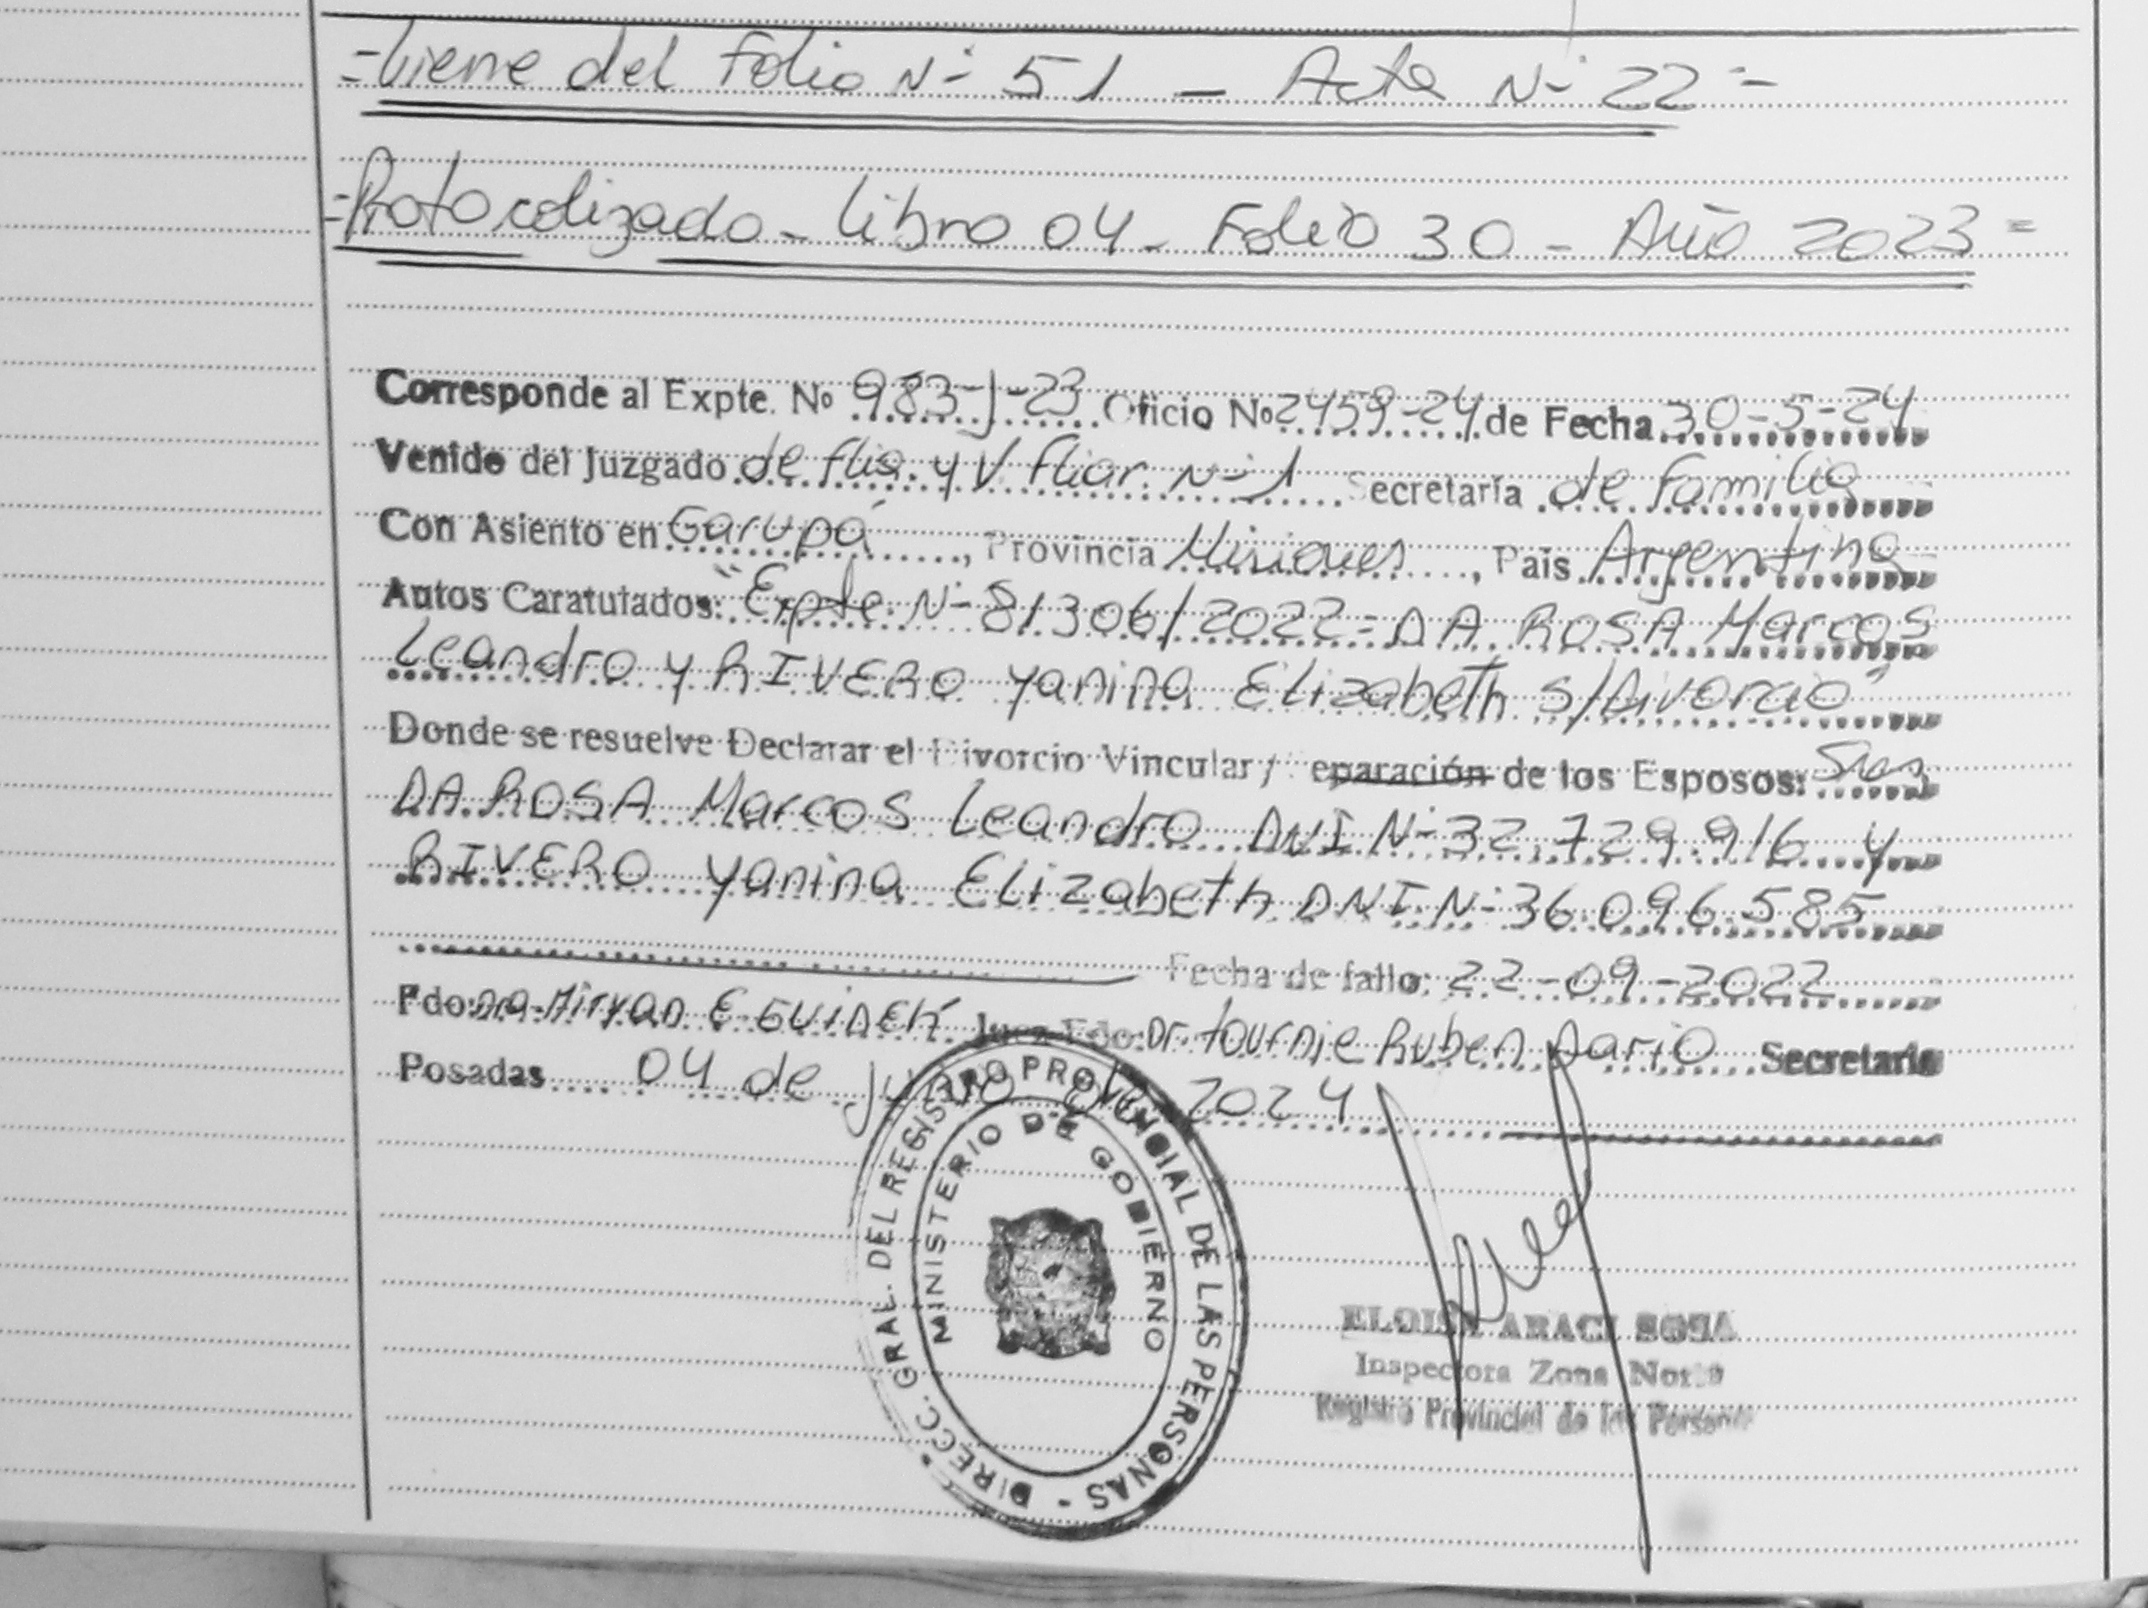 =Viene del Folio Nº 51 - Acta Nº 22=
=Protocolizado - Libro 04 - Folio 30 - Año 2023=
Corresponde al Expte. Nº 983-J-23 Oficio Nº 2459-24 de Fecha 30-5-24
Venido del Juzgado de flia. y V. fliar. Nº 1 Secretaría de Familia
Con Asiento en Garupá, Provincia Misiones, País Argentina
Autos Caratulados: "Expte. Nº 81306/2022 = DA ROSA Marcos
Leandro y RIVERO Yanina Elizabeth s/Divorcio"
Donde se resuelve Declarar el Divorcio Vincular / eparación de los Esposos: Sres,
DA ROSA Marcos Leandro DNI Nº 32.729.916 y
RIVERO Yanina Elizabeth DNI Nº 36.096.585
Fecha de fallo: 22-09-2022
Fdo: Miryan E. Juez Fdo: Dr. Tournie Ruben Dario Secretario
Posadas 04 de Junio de 2024
DIRECC. GRAL. DEL REGISTRO PROVINCIAL DE LAS PERSONAS -
MINISTERIO DE GOBIERNO
ELOISA ARACI SOSA
Inspectora Zona Norte
Registro Provincial de las Personas